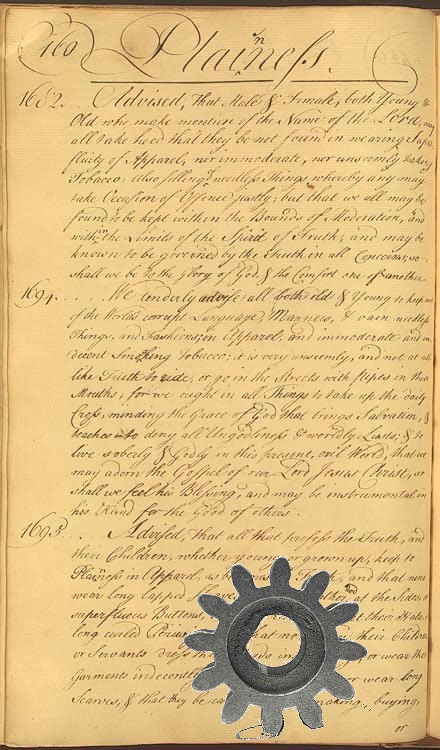 160 Plainness.
1682... Advised, That Male & Female, both Young &
Old who make mention of the Name of the Lord, may
all take heed that they be not found in wearing Supr
fluity of Apparel, nor immoderate, nor unseemly taking
Tobacco: Also selling needless Things whereby any may
take Occasion of Offence justly; but that we all may be
found to be kept within the Bounds of Moderation, and
within the Limits of the Spirit of Truth, and may be
known to be governed by the Truth in all Concerns, so
shall we be to the Glory of God, & the Comfort one of another.
1694..... We tenderly advise all both old & Young to keep out
of the World's corrupt Language, Manners, & vain needless
Things, and Fashions, in Apparel; and immoderate and in
decent Smoking Tobacco; it is very unseemly, and not at all
like Truth to ride, or go in the Streets with pipes in their
Mouths, for we ought in all Things to take up the daily
Cross, minding the Grace of God that brings Salvation, &
teaches to deny all Ungodliness & worldly Lusts, & to
live soberly & Godly in this present, evil World, that we
may adorn the Gospel of our Lord Jesus Christ, so
shall we feel his Blessing, and may be instrumental in
his Hand for the Good of others.
1695... Advised, That all that profess the Truth, and
their Children, whether young or grown up, keep to
Plainness in Apparel, as and that none
wear long lapped at the Sides, or
superfluous Buttons, their Hats, or
long curled that no their Children
or Servants dress or wear their
Garments indecently or wear long
Scarves, & that they be making, buying,
or